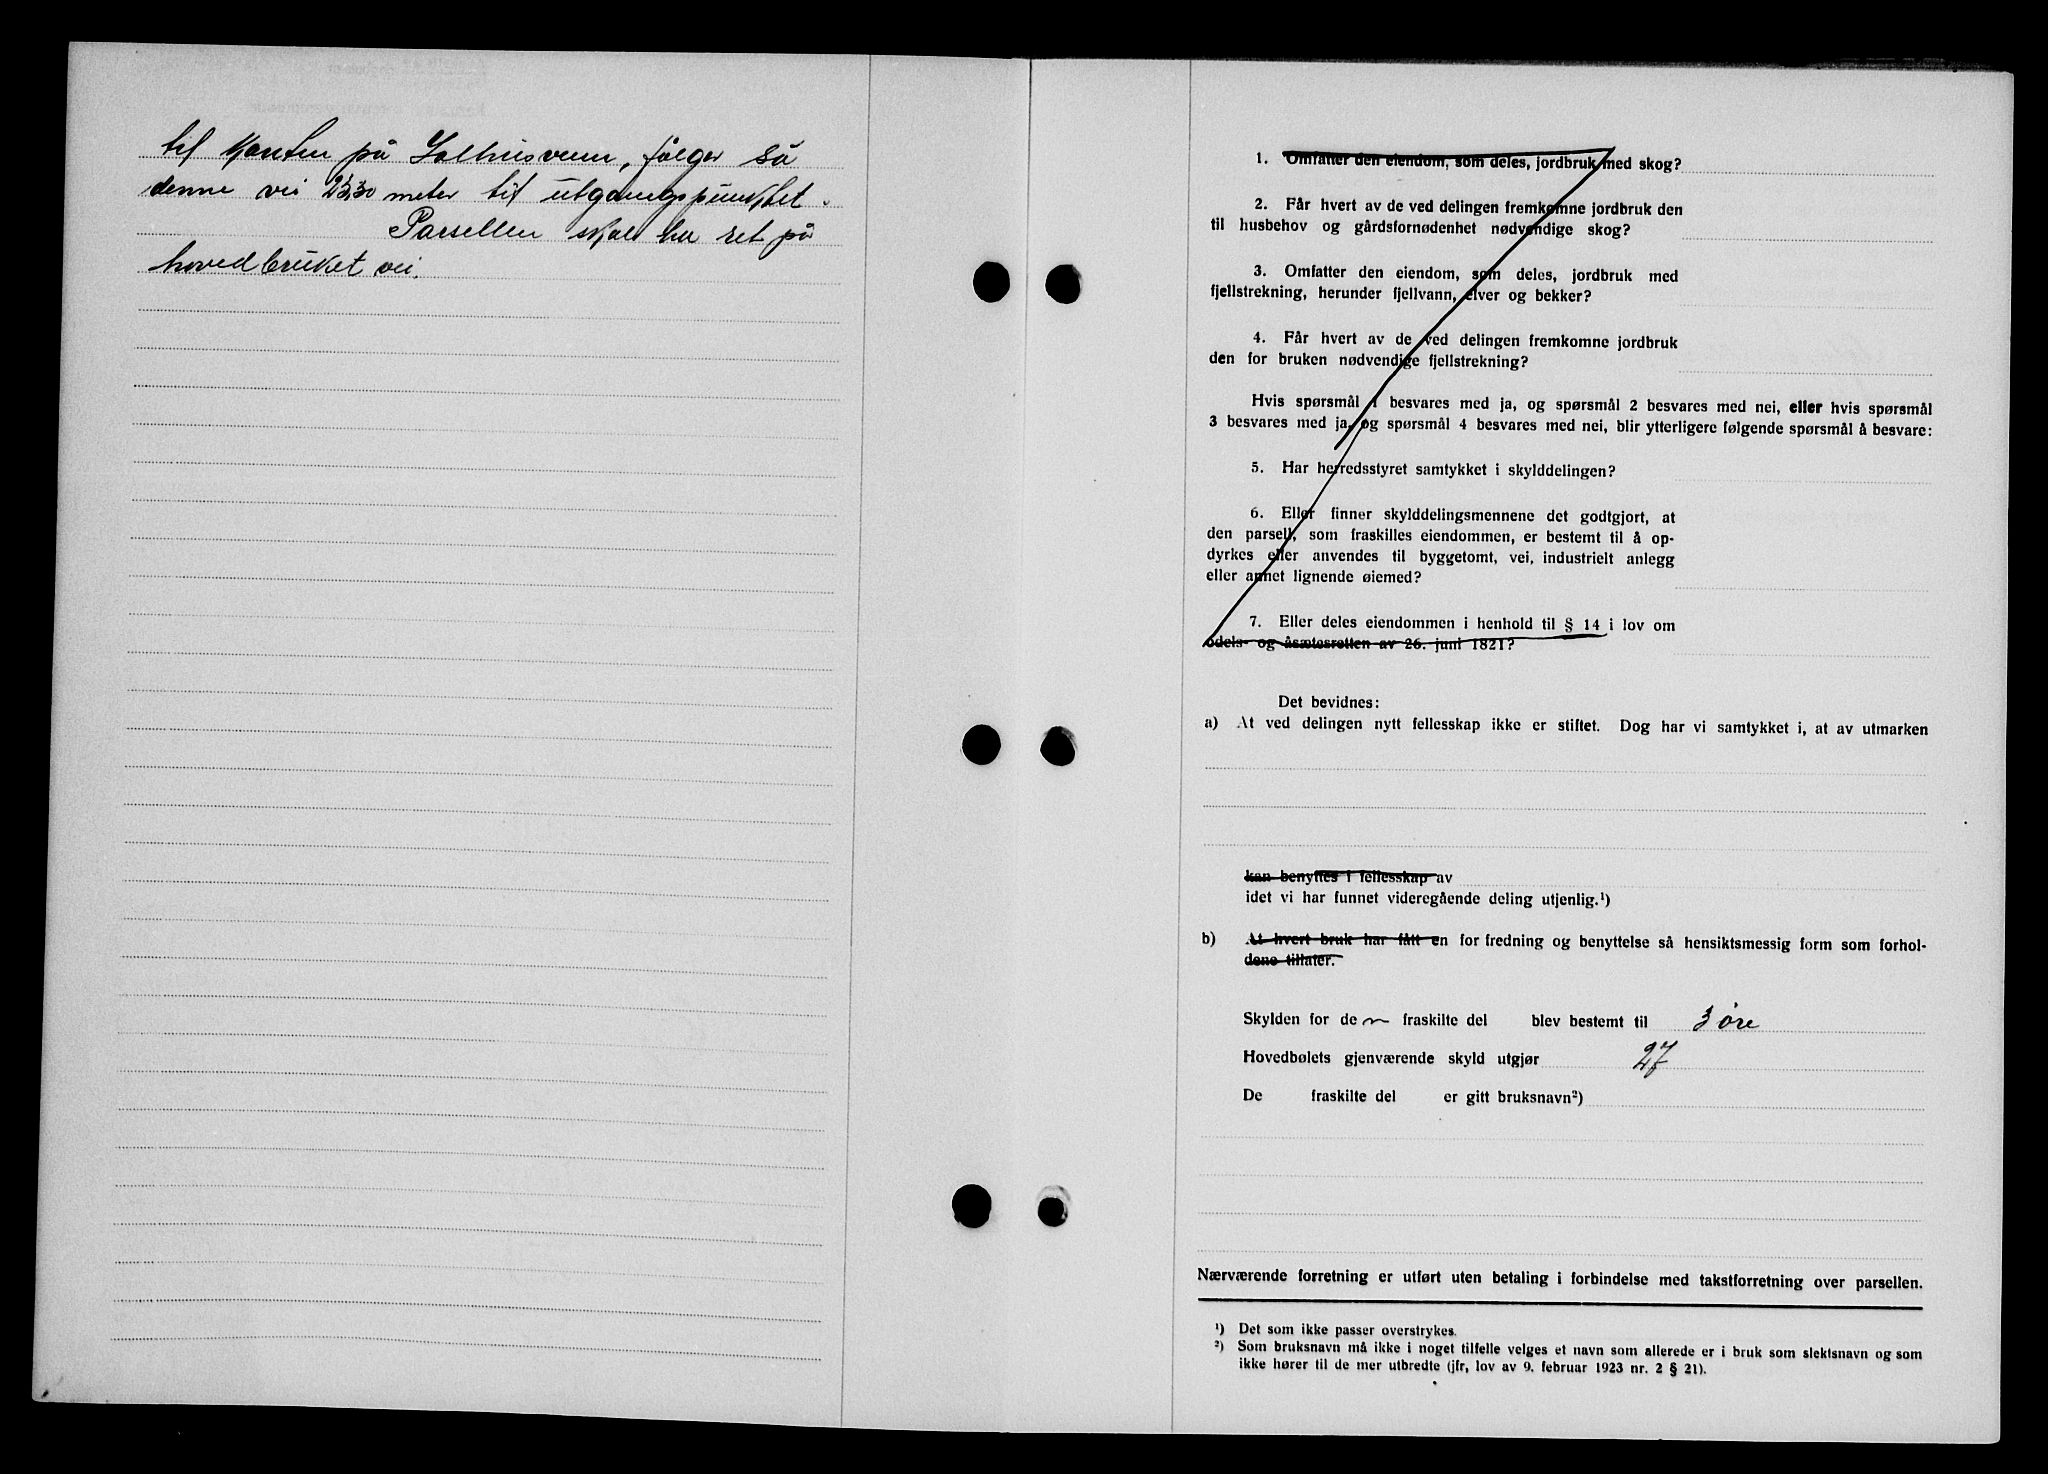 til kanten på Solhusveien, følger så
denne vei 23,30 meter til utgangspunktet.
Parsellen skal ha ret på
hovedbruket vei.
1. Omfatter den eiendom, som deles, jordbruk med skog?
2. Får hvert av de ved delingen fremkomne jordbruk den
til husbehov og gårdsfornødenhet nødvendige skog?
3. Omfatter den eiendom, som deles, jordbruk med
fjellstrekning, herunder fjellvann, elver og bekker?
4. Får hvert av de ved delingen fremkomne jordbruk
den for bruken nødvendige fjellstrekning?
Hvis spørsmål 1 besvares med ja, og spørsmål 2 besvares med nei, eller hvis spørsmål
3 besvares med ja, og spørsmål 4 besvares med nei, blir ytterligere følgende spørsmål å besvare:
5. Har herredsstyret samtykket i skylddelingen?
6. Eller finner skylddelingsmennene det godtgjort, at
den parsell, som fraskilles eiendommen, er bestemt til å op-
dyrkes eller anvendes til byggetomt, vei, industrielt anlegg
eller annet lignende øiemed?
7. Eller deles eiendommen i henhold til § 14 i lov om
odels- og åsætesretten av 26. juni 1821?
Det bevidnes:
a) At ved delingen nytt fellesskap ikke er stiftet. Dog har vi samtykket i, at av utmarken
kan benyttes i fellesskap av
idet vi har funnet videregående deling utjenlig.¹)
b) At hvert bruk har fått en for fredning og benyttelse så hensiktsmessig form som forhol-
dene tillater.
Skylden for de n fraskilte del blev bestemt til 3 øre
Hovedbølets gjenværende skyld utgjør 27
De fraskilte del er gitt bruksnavn²)
Nærværende forretning er utført uten betaling i forbindelse med takstforretning over parsellen.
¹) Det som ikke passer overstrykes.
²) Som bruksnavn må ikke i noget tilfelle velges et navn som allerede er i bruk som slektsnavn og som
ikke hører til de mer utbredte (jfr, lov av 9. februar 1923 nr. 2 § 21).